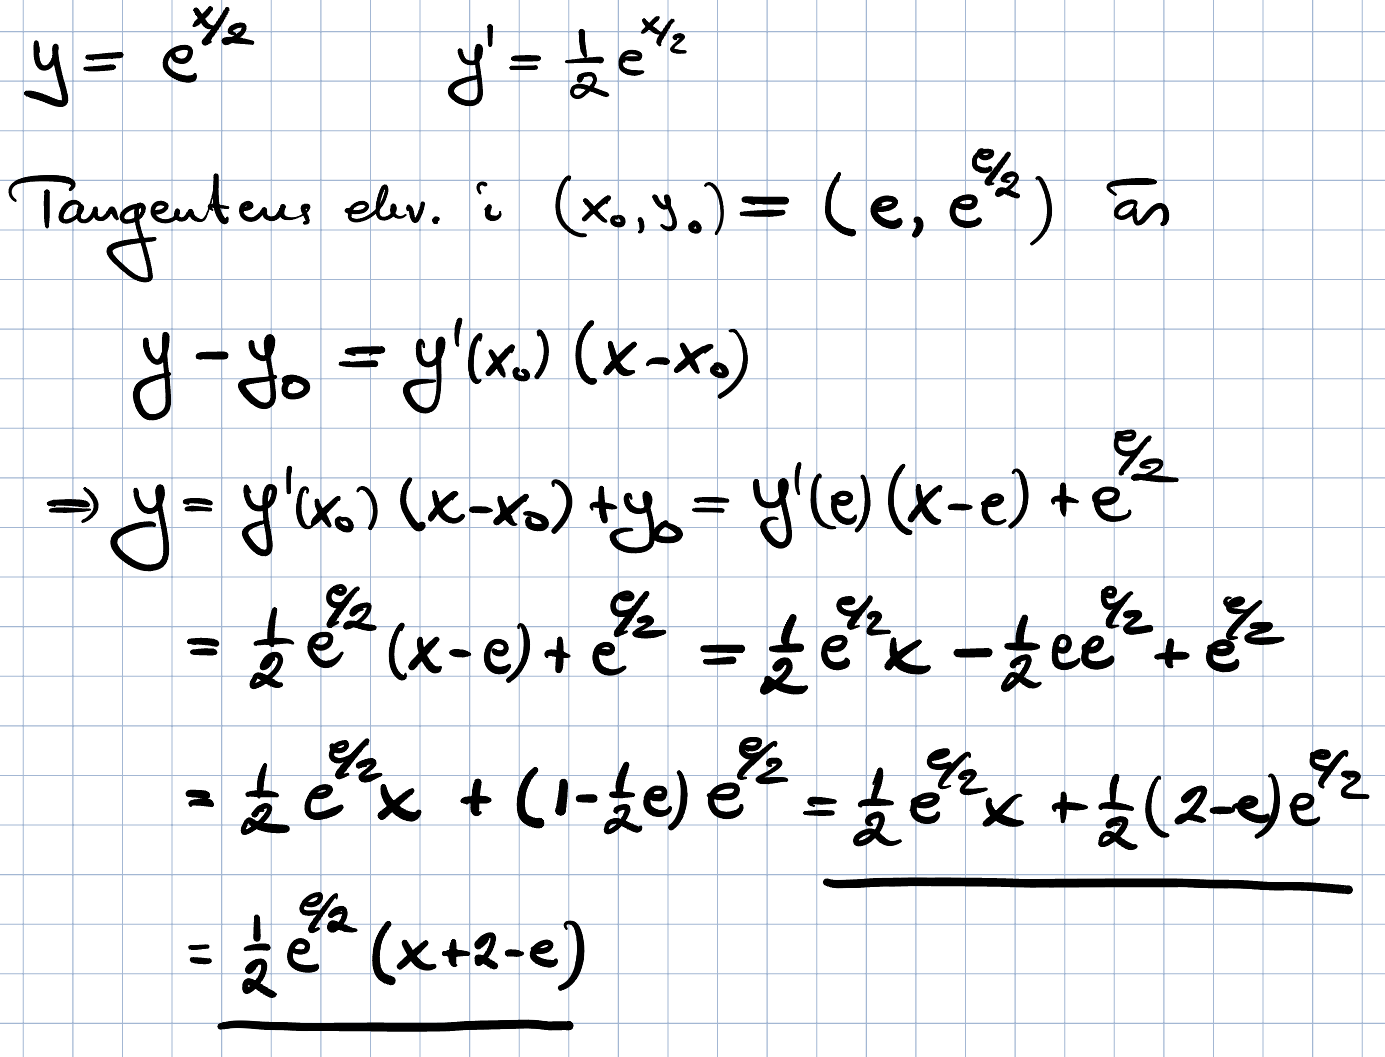 y = e^{x/2}    y' = \frac{1}{2} e^{x/2}
Tangentens ekv. i (x_0, y_0) = (e, e^{e/2}) är
y - y_0 = y'(x_0) (x - x_0)
⇒ y = y'(x_0) (x - x_0) + y_0 = y'(e) (x - e) + e^{e/2}
= \frac{1}{2} e^{e/2} (x - e) + e^{e/2} = \frac{1}{2} e^{e/2} x - \frac{1}{2} e e^{e/2} + e^{e/2}
= \frac{1}{2} e^{e/2} x + (1 - \frac{1}{2} e) e^{e/2} = \frac{1}{2} e^{e/2} x + \frac{1}{2} (2 - e) e^{e/2}
= \frac{1}{2} e^{e/2} (x + 2 - e)